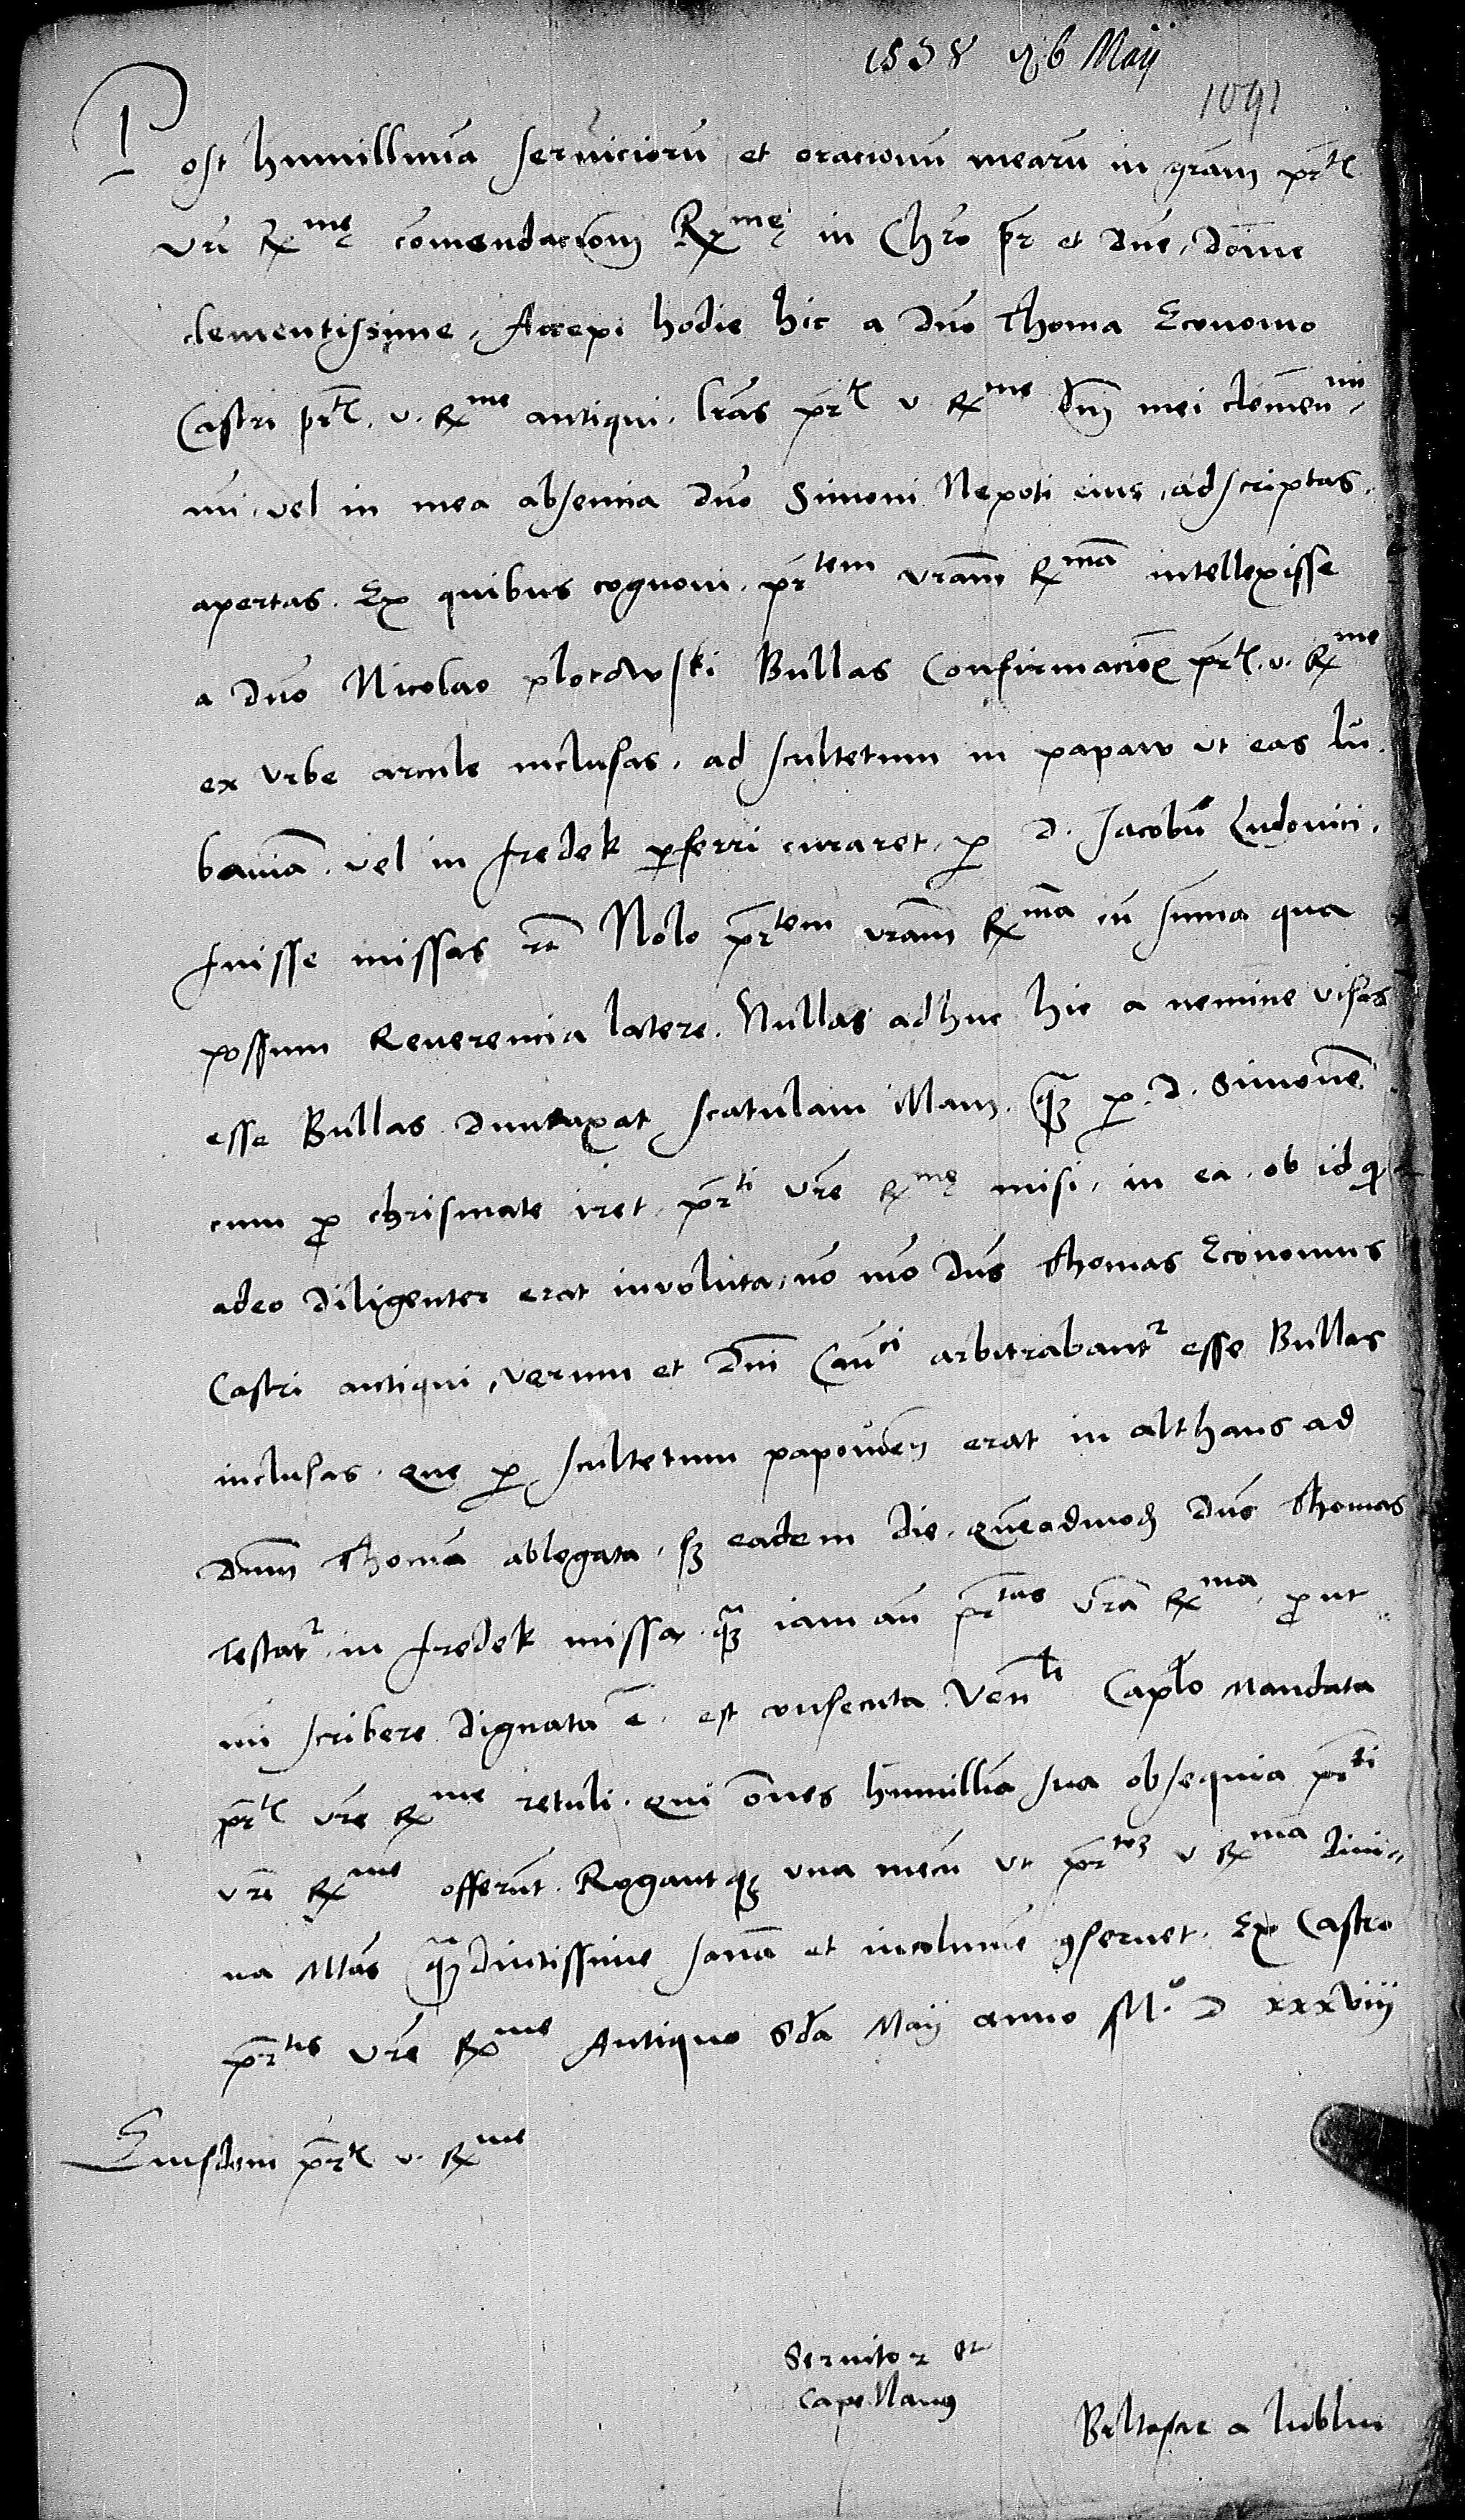 1538 6 Maij
1091
Post humillimā seruiciorū et oracionū mearū in grām prtꝭ
vrē Rxmę cōmendacionē Rxmę in Chro pr et dne, dōīne
clementissime, Accepi hodie hic a dno Thoma Economo
Castri prtꝭ. v. Rxme antiqui. lrās prtꝭ v Rxme dnī mei clemen
mi, vel in mea absencia dno Simoni Nepoti eius, adscriptas.
apertas. Ex quibus cognoui. prtem vrām Rxmā intellexisse
a dno Nicolao plotowski Bullas Confirmaciōꝭ prtꝭ. v. Rxme
ex vrbe arcule inclusas. ad scultetum in papaw vt eas lu
bauiā. vel in fredek ꝑferri curaret, ꝑ d. Jacobū Ludouici.
fuisse missas rc Nolo prtem vrām Rxmā cū sūma qua
possum Reuerencia latere. Nullas adhuc hic a nemine visas
esse Bullas duntaxat scatulam illam. quā ꝑ. d. Simonē
cum ꝓ chrismate iret, prti vre Rxmę misi, in ea. ob id qꝫ
adeo diligenter erat inuoluta, nō mō dns Thomas Economus
Castri antiqui, verum et dni Canci arbitrabantr esse Bullas
inclusas. que ꝑ scultetum papouien erat in althaus ad
dnum Thomā ablegata, sꝫ eadem die. queadmoꝺ dns Thomas
testatr in fredek missa. quā iam an prtas vrā Rxma, ꝓut
mi scribere dignata ē. est consecuta. Venli Caplo Mandata
prtꝭ vre Rxme retuli. qui ōnes humilliā sua obsequia prti
vre Rxme offerunt. Rogant qꝫ vna mecū vt prtem v Rxmā diui
na Mtas qꝫ diutissime sanā et incolumē ꝯseruet. Ex Castro
prtis vre Rxme Antiquo Sda Maij anno M.o D xxxviij
Eiusdem prtꝭ v. Rxme
Seruitor et
Capellanus
Baltasar a lublin